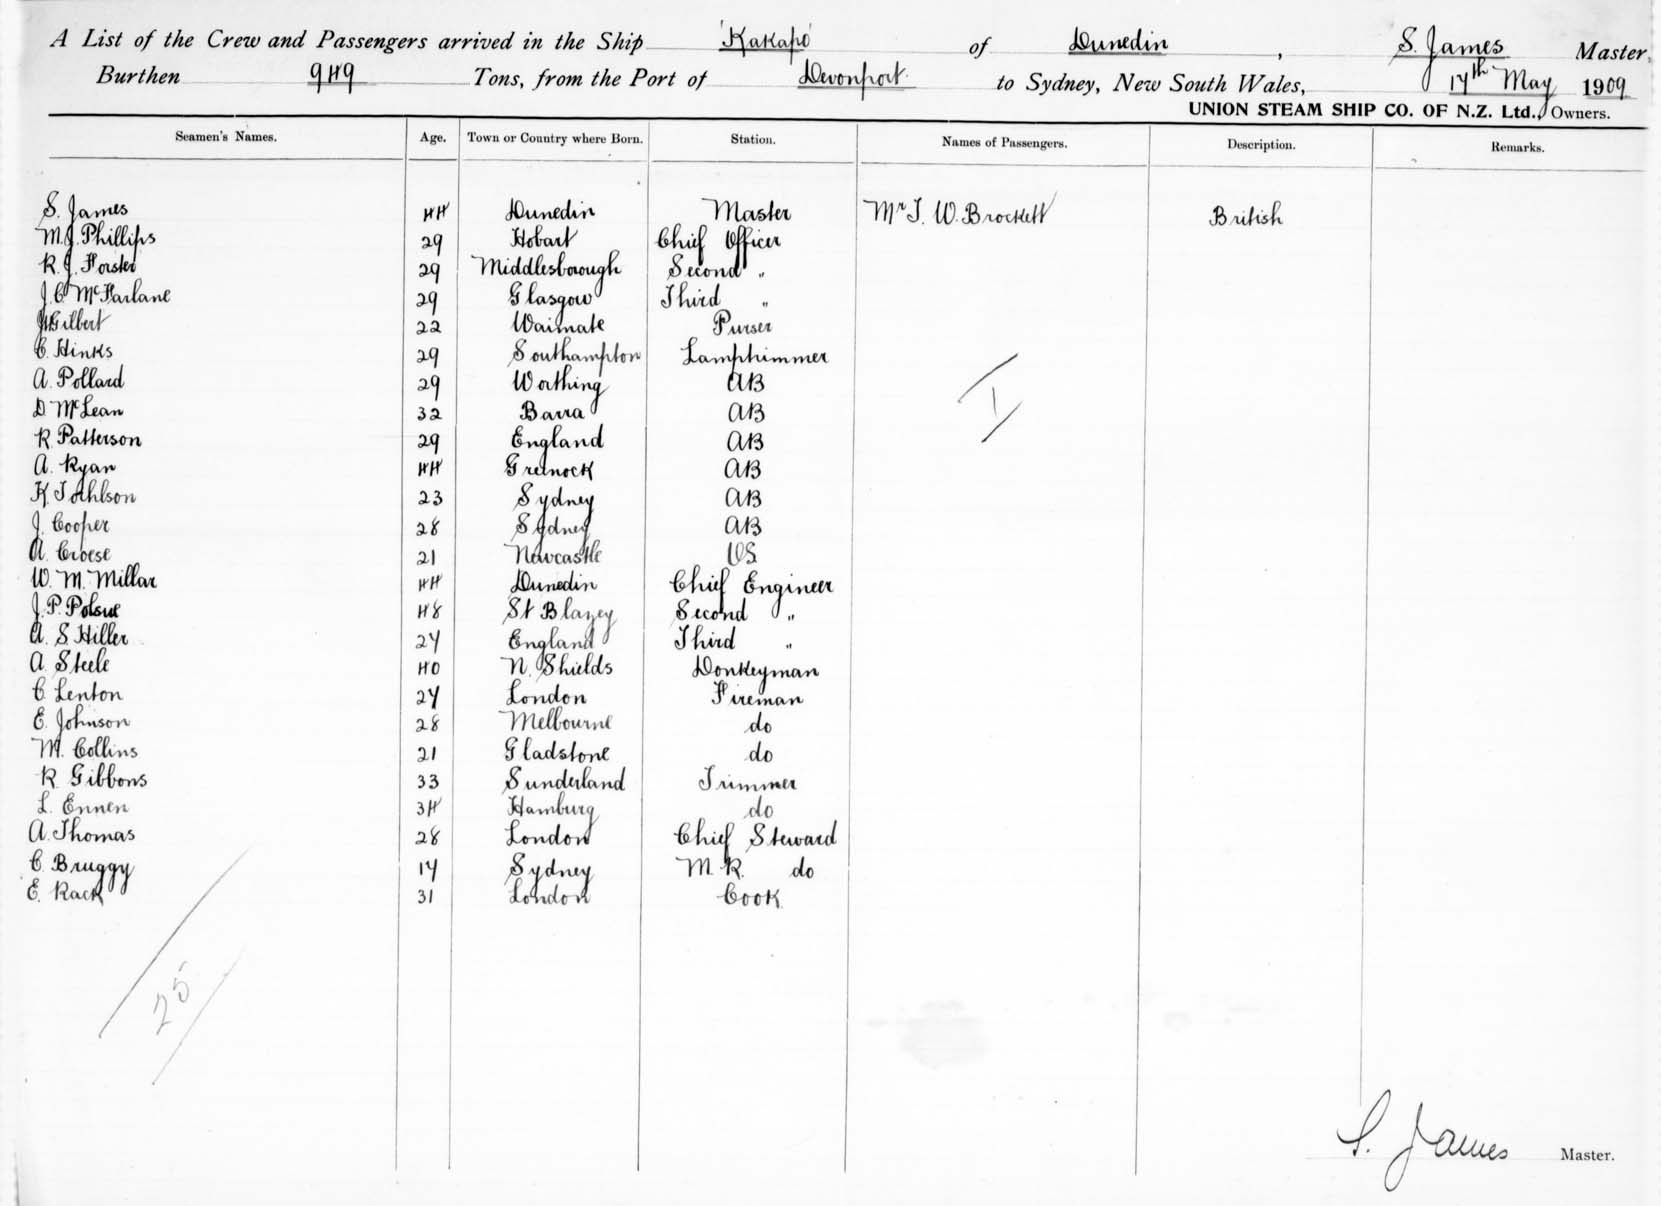 A List of the Crew and Passengers arrived in the Ship 'Kakapo' of Dunedin, S. James Master,
Burthen 949 Tons, from the Port of Devonport to Sydney, New South Wales, 17th May 1909
UNION STEAM SHIP CO. OF N.Z. Ltd., Owners.
Seamen's Names. Age. Town or Country where Born. Station. Names of Passengers. Description. Remarks.
S. James 44 Dunedin Master Mr T. W. Brockett British
M.J. Phillips 29 Hobart Chief Officer
R. J. Forster 29 Middlesborough Second "
J. C. McFarlane 29 Glasgow Third "
Gilbert 22 Waimate Purser
C. Hinks 29 Southampton Lamptrimmer
A. Pollard 29 Worthing AB
D McLean 32 Barra AB
R. Patterson 29 England AB
A. Ryan 44 Greenock AB
K. 23 Sydney AB
J. Cooper 28 Sydney AB
A. Croese 21 Newcastle OS
W. M. Millar 44 Dunedin Chief Engineer
J. P. Polsue 48 St Blazey Second "
A. S Hiller 27 England Third "
A. Steele 40 N. Shields Donkeyman
C. Lenton 27 London Fireman
E. Johnson 28 Melbourne do
M. Collins 21 Gladstone do
R. Gibbons 33 Sunderland Trimmer
L. Ennen 34 Hamburg do
A. Thomas 28 London Chief Steward
C. Bruggy 17 Sydney M. R. do
E. Rack 31 London Cook
1
25
S. James Master.